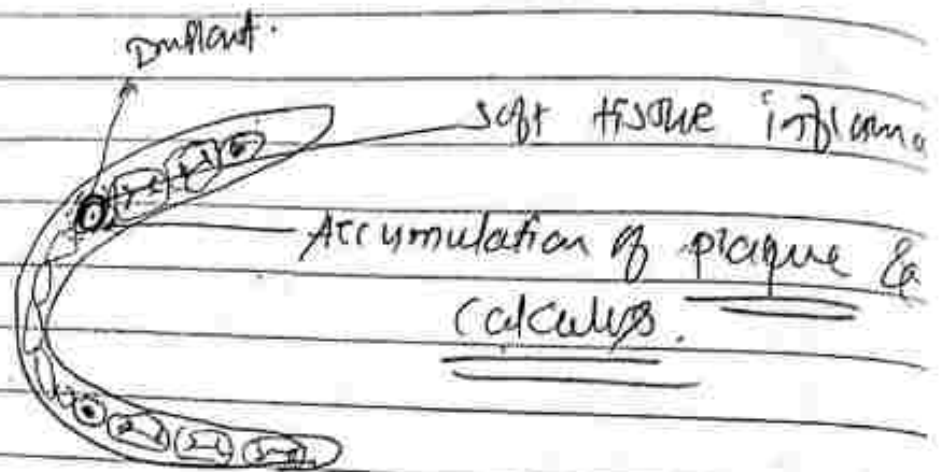 Implant.
soft tissue inflamma
Accumulation of plaque &
calculus.